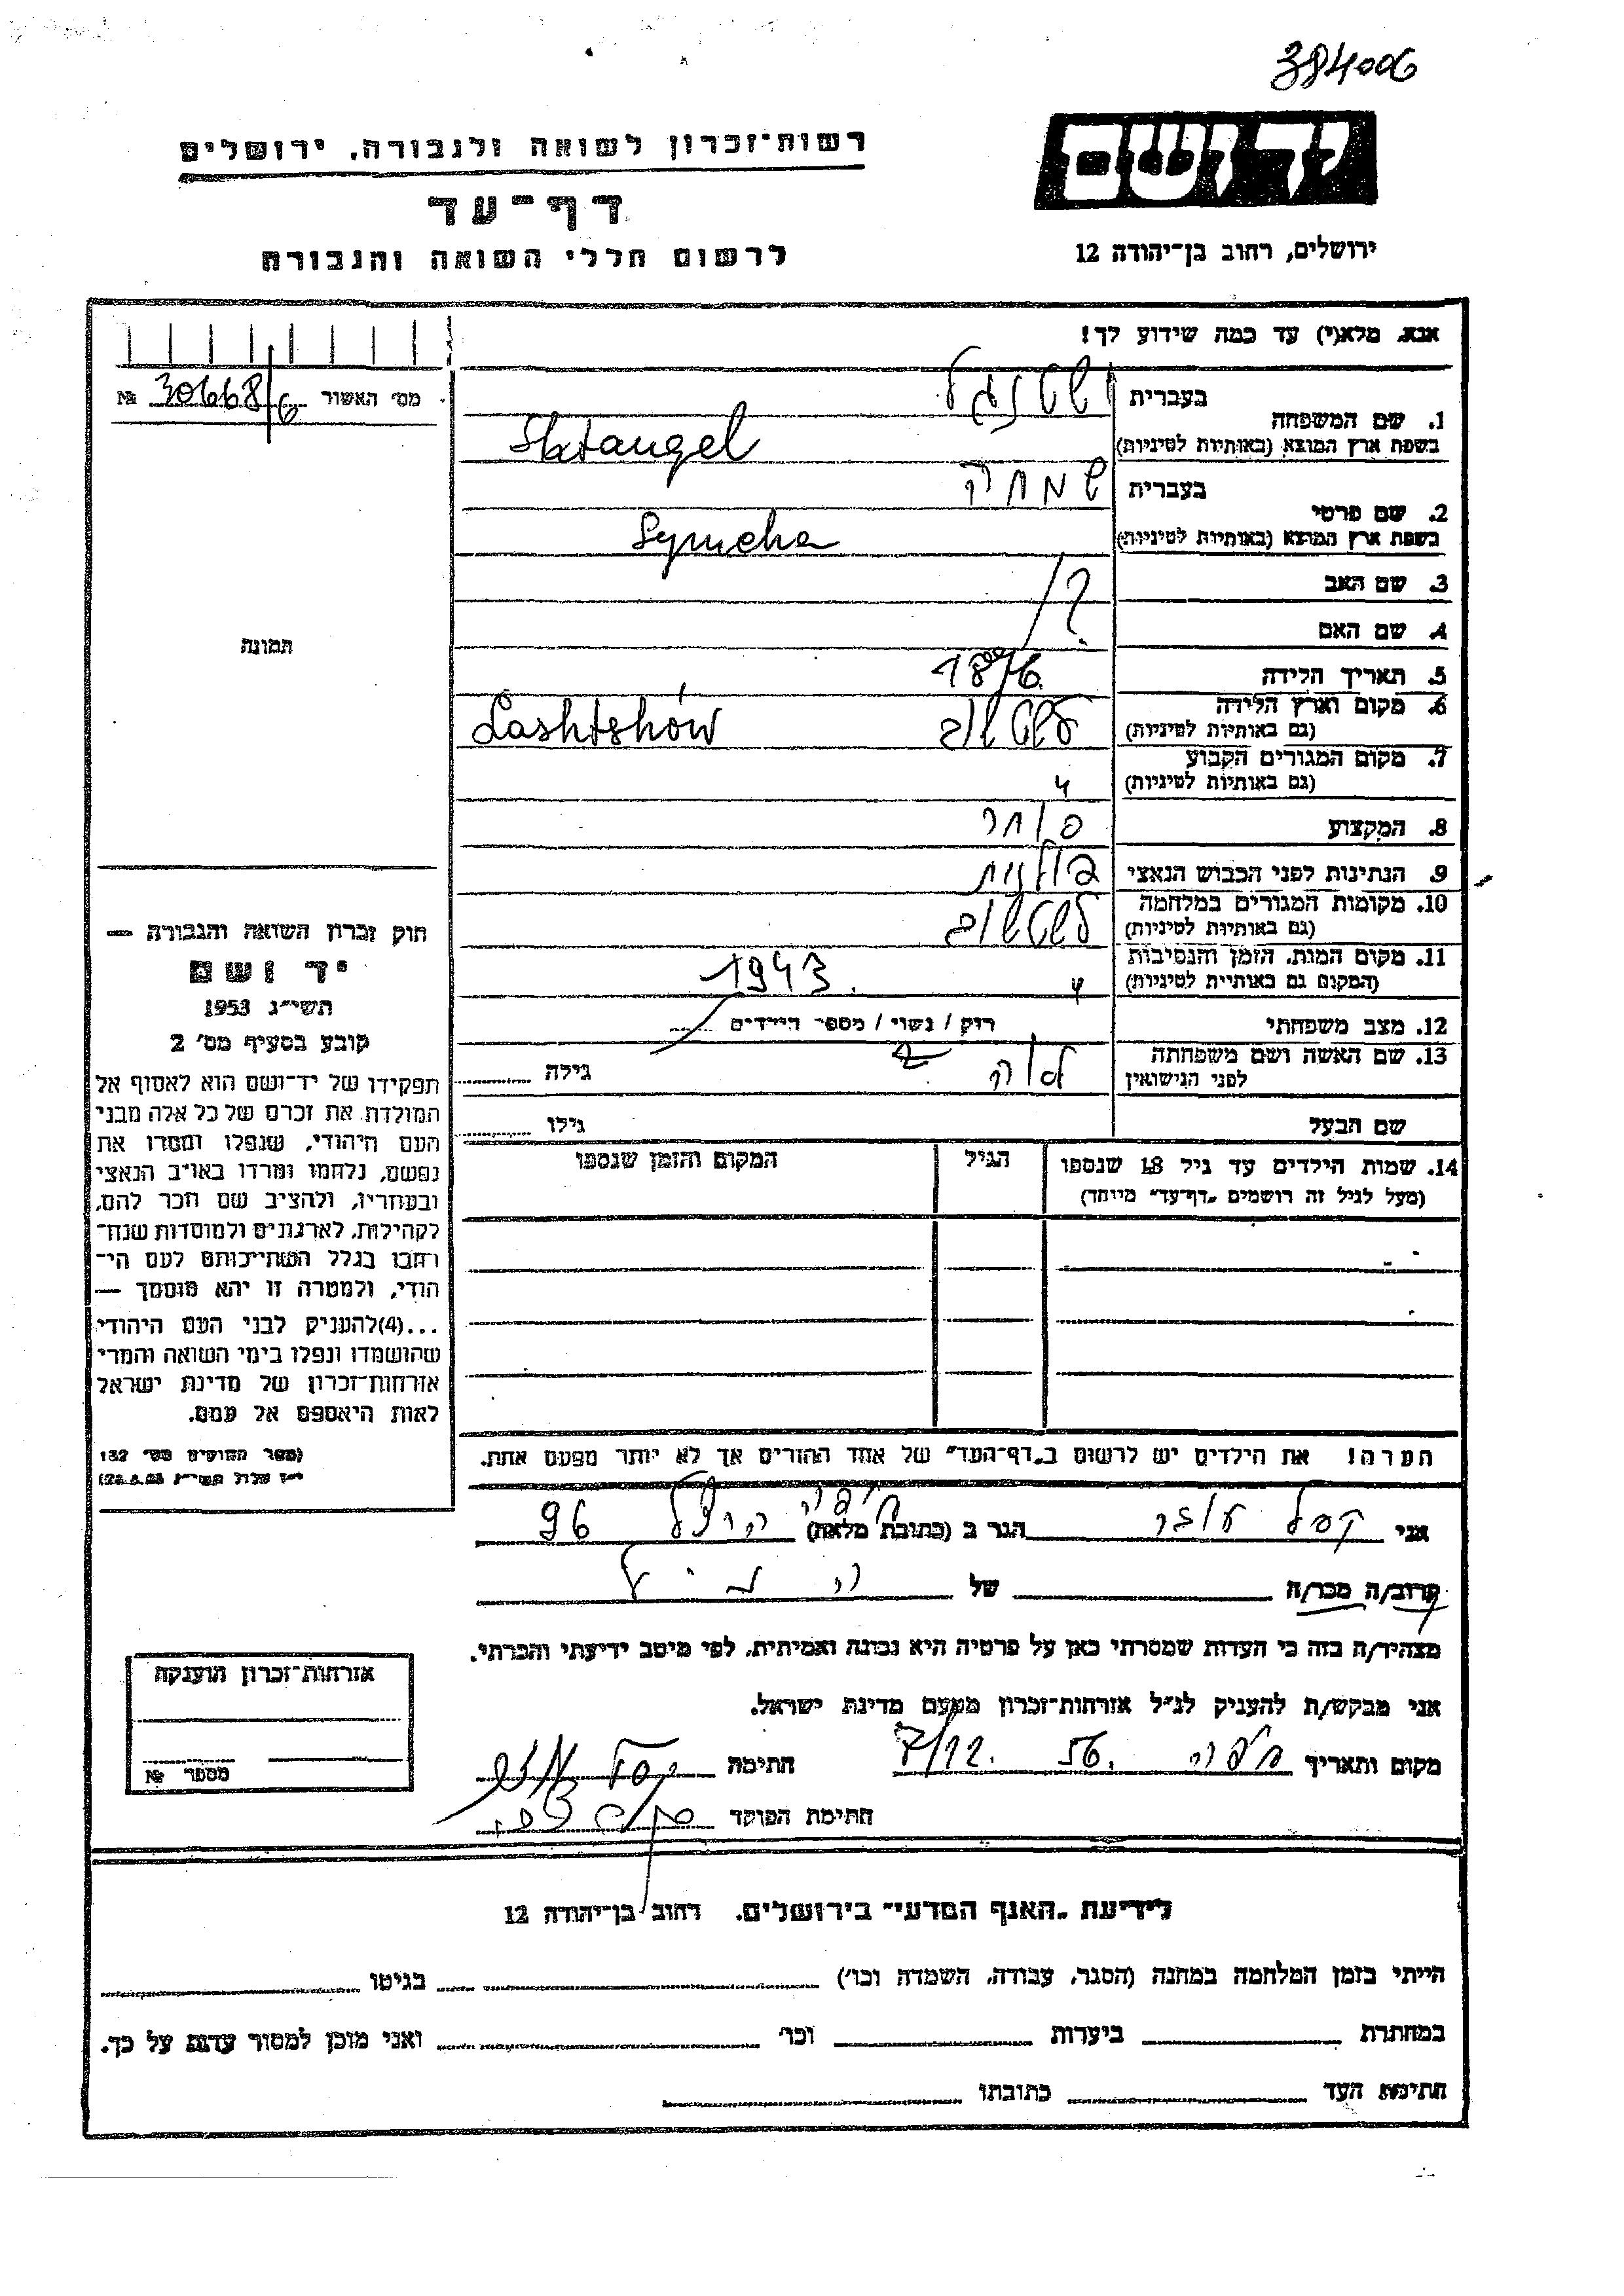 384006
רשות־זכרון לשואה ולגבורה, ירושלים
דף־עד
לרשום חללי השואה והגבורה
יד ושם
ירושלים, רחוב בן־יהודה 12
אנא, מלא(י) עד כמה שידוע לך!
מס׳ האשור 30668/6 №
1. שם המשפחה
בעברית שטנגל
בשפת ארץ המוצא (באותיות לטיניות) Shtangel
2. שם פרטי
בעברית שמחה
בשפת ארץ המוצא (באותיות לטיניות) Symcha
3. שם האב
4. שם האם ?
5. תאריך הלידה 1876.
6. מקום וארץ הלידה
(גם באותיות לטיניות) לשטשוב Lashtshów
7. מקום המגורים הקבוע
(גם באותיות לטיניות) "
8. המקצוע סוחר
9. הנתינות לפני הכבוש הנאצי פולנית
10. מקומות המגורים במלחמה
(גם באותיות לטיניות) לשטשוב
11. מקום המות, הזמן והנסיבות
(המקום גם באותיית לטיניות) " 1943.
12. מצב משפחתי רוק / נשוי / מספר הילדים
13. שם האשה ושם משפחתה
לפני הנישואין לאה ? גילה
שם הבעל גילו
14. שמות הילדים עד גיל 18 שנספו
(מעל לגיל זה רושמים „דף־עד״ מיוחד)
הגיל
המקום והזמן שנספו
הערה! את הילדים יש לרשום ב„דף־העד״ של אחד ההורים אך לא יותר מפעם אחת.
תמונה
חוק זכרון השואה והגבורה —
יד ושם
תשי״ג 1953
קובע בסעיף מס׳ 2
תפקידו של יד־ושם הוא לאסוף אל
המולדת את זכרם של כל אלה מבני
העם היהודי, שנפלו ומסרו את
נפשם, נלחמו ומרדו באויב הנאצי
ובעוזריו, ולהציב שם וזכר להם,
לקהילות, לארגונים ולמוסדות שנח־
רבו בגלל השתייכותם לעם הי־
הודי, ולמטרה זו יהא מוסמך —
...(4)להעניק לבני העם היהודי
שהושמדו ונפלו בימי השואה והמרי
אזרחות־זכרון של מדינת ישראל
לאות היאספם אל עמם.
(ספר החוקים מס׳ 132
אני הגר ב (כתובת מלאה) חיפה הרצל 96
קרוב/ה מכר/ה של הנ״ל
מצהיר/ה בזה כי העדות שמסרתי כאן על פרטיה היא נכונה ואמיתית, לפי מיטב ידיעתי והכרתי.
אני מבקש/ת להעניק לנ״ל אזרחות־זכרון מטעם מדינת ישראל.
מקום ותאריך חיפה 7/12. 56. חתימה
חתימת הפוקד
אזרחות־זכרון הוענקה
מספר №
לידיעת „האגף המדעי״ בירושלים, רחוב בן־יהודה 12
הייתי בזמן המלחמה במחנה (הסגר, עבודה, השמדה וכו׳) בגיטו
במחתרת ביערות וכו׳ ואני מוכן למסור עדות על כך.
חתימת העד כתובתו